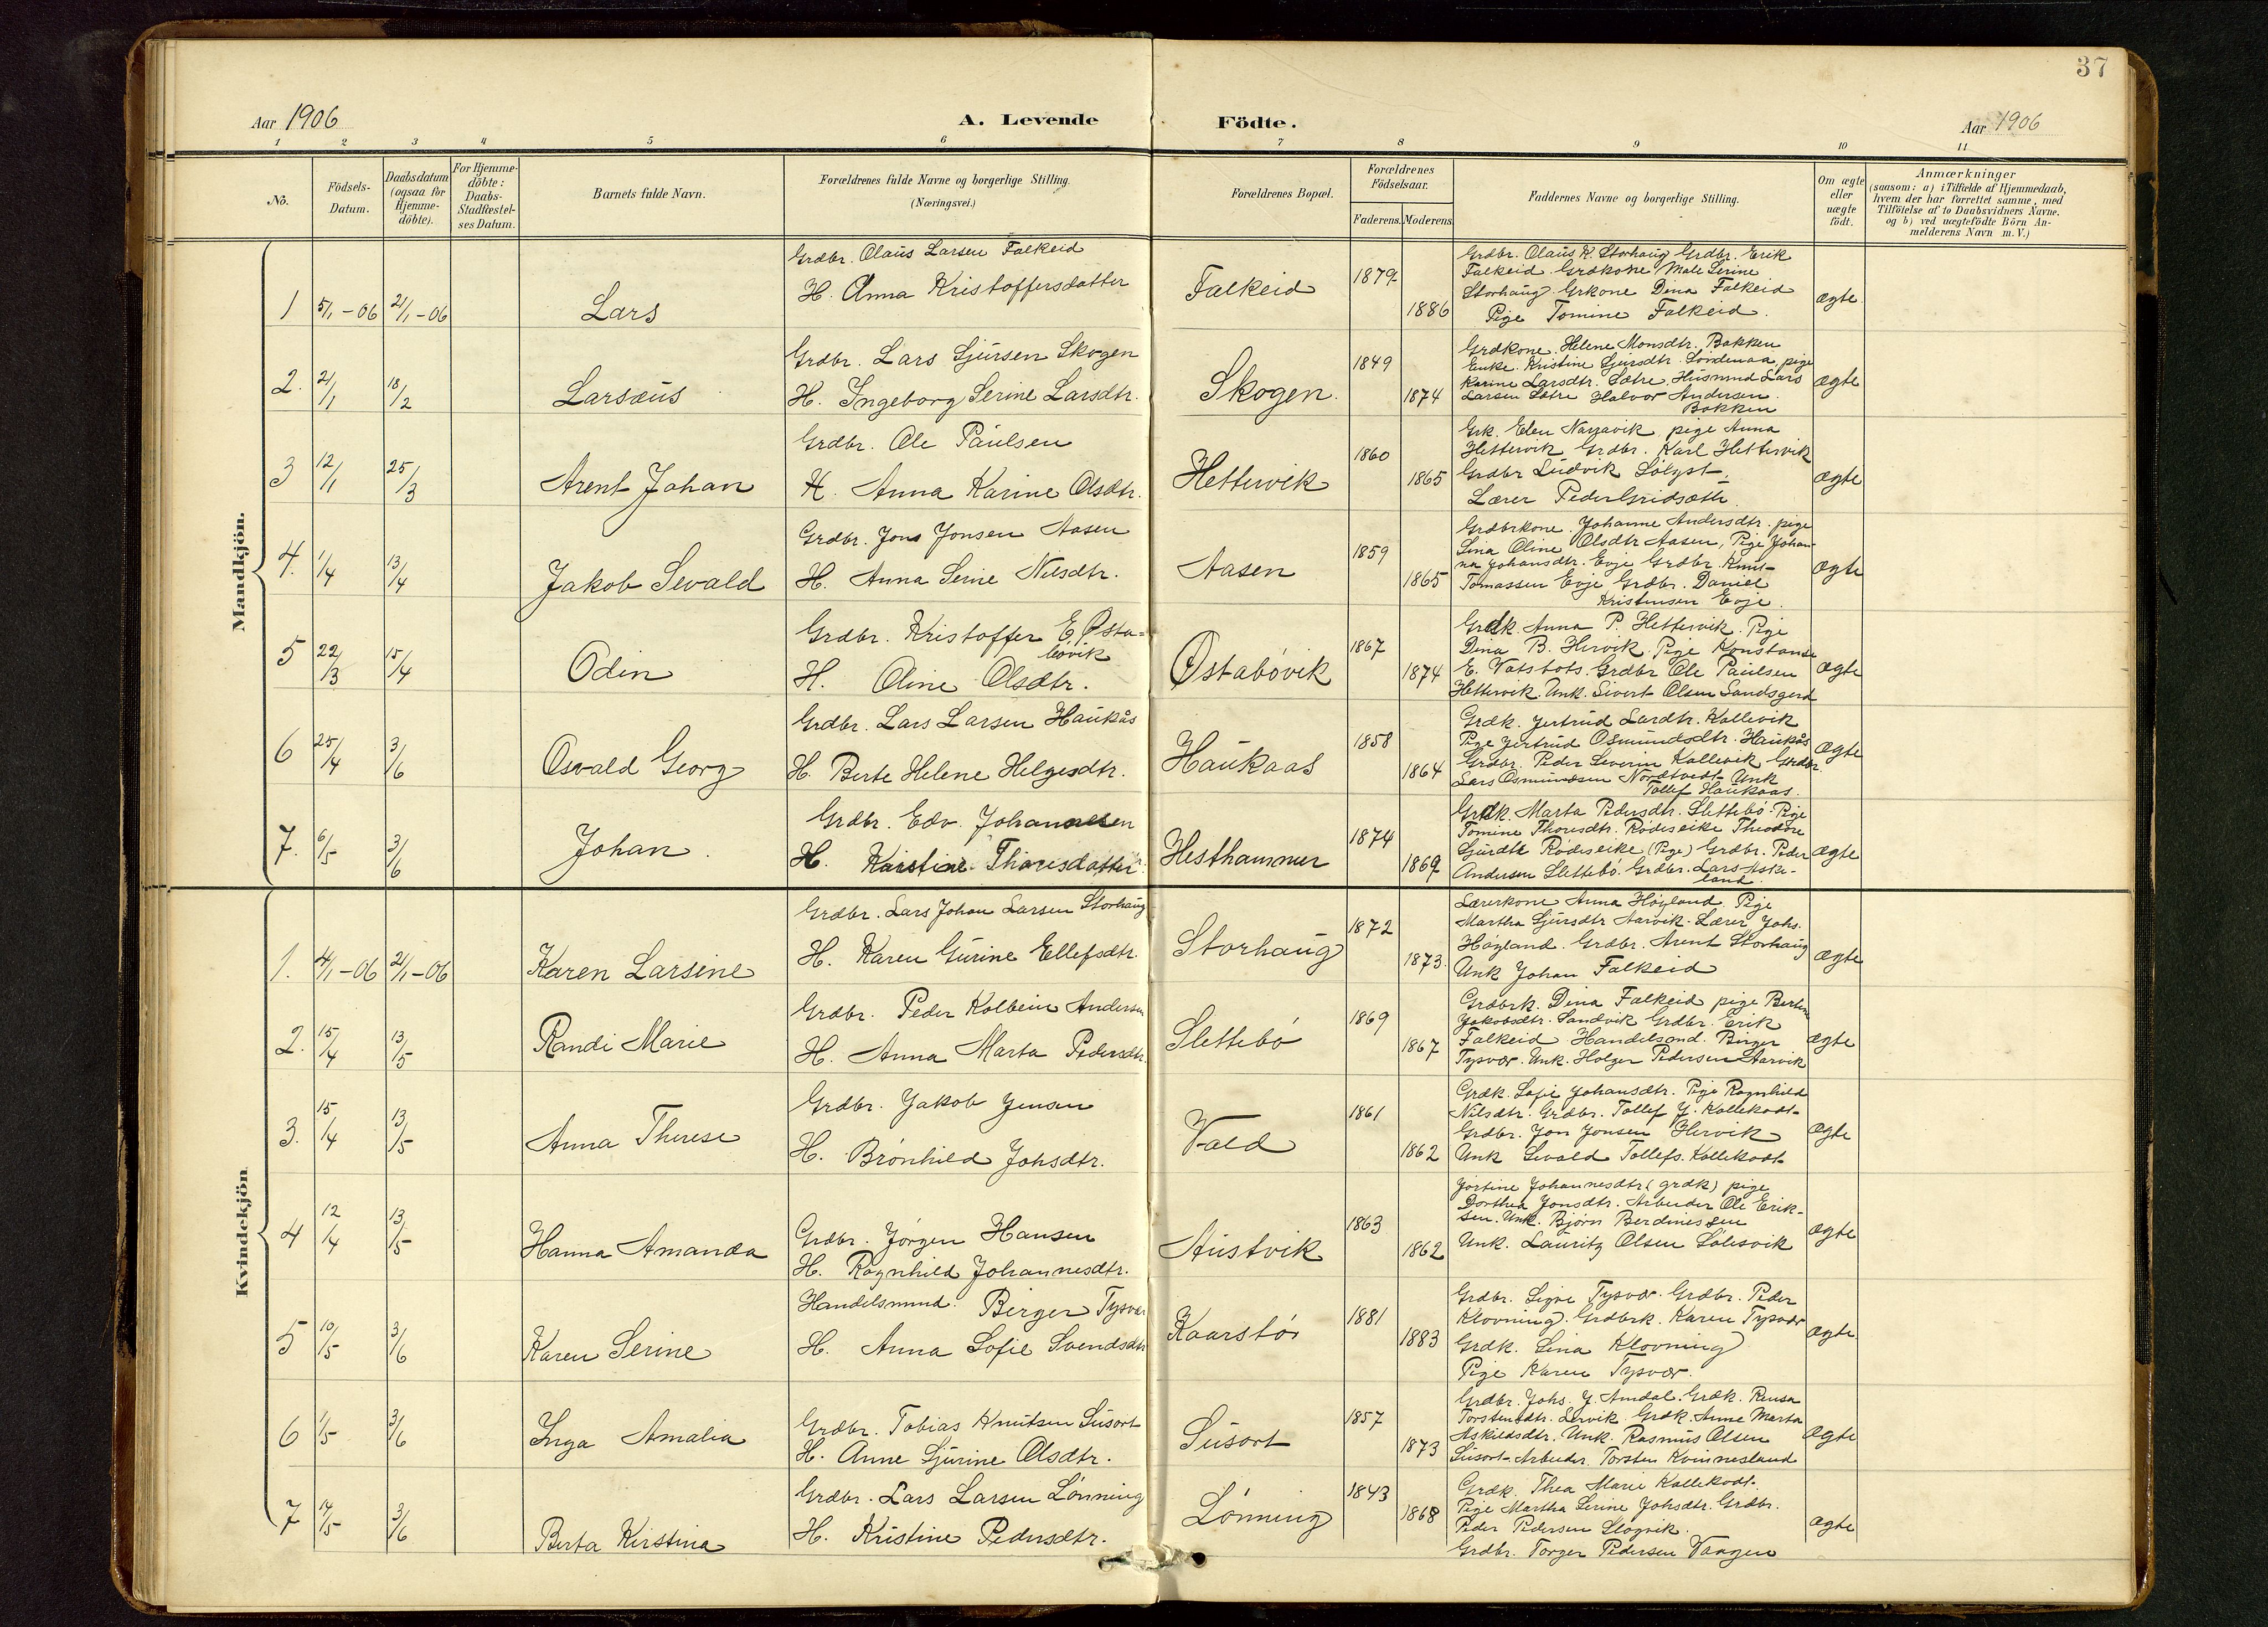 37
Aar 1906
A. Levende Födte.
Aar 1906
1 2 3 4 5 6 7 8 9 10 11
No.
Födsels-Datum.
Daabsdatum (ogsaa for Hjemme-döbte).
For Hjemme-döbte: Daabs-Stadfæstel-ses Datum.
Barnets fulde Navn.
Forældrenes fulde Navne og borgerlige Stilling. (Næringsvei.)
Forældrenes Bopæl.
Forældrenes Födselsaar.
Faderens. Moderens.
Faddernes Navne og borgerlige Stilling.
Om ægte eller uægte födt.
Anmærkninger
(saasom: a) i Tilfælde af Hjemmedaab,
hvem der har forrettet samme, med
Tilföielse af to Daabsvidners Navne,
og b) ved uægtefödte Börn An-
melderens Navn m. V.)
Mandkjön.
1 5/1-06 21/1-06 Lars
Grdbr. Olaus Larsen Falkeid
H. Anna Kristoffersdatter
Falkeid 1879 1886
Grdbr. Olaus K. Storhaug Grdbr. Erik
Falkeid. Grdkone Male Serine
Storhaug. Grkone Dina Falkeid
Pige Tomine Falkeid.
ægte
2. 21/1 18/2 Larsæus
Grdbr. Lars Sjursen Skogen
H. Ingeborg Serine Larsdtr.
Skogen. 1849 1874
Grdkone. Helene Monsdtr. Bakken
Enke. Kristine Sjursdtr. Søndenaa pige
Karine Larsdtr. Sætre. Husmnd Lars
Larsen Sætre Halvor Andersen.
Bakken
ægte
3 12/1 25/3 Arent Johan
Grdbr. Ole Paulsen
H. Anna Karine Olsdtr.
Hettervik 1860 1865
Grk. Elen Narravik pige Anna
Hettervik Grdbr. Karl Hettervik
Grdbr Ludvik
Lærer Peder
ægte
4. 1/4 13/4 Jakob Sevald
Grdbr. Jons Jonsen Aasen
H. Anna Serine Nilsdtr.
Aasen 1859 1865
Grdbrkone. Johanne Andersdtr. pige
Lina Oline Olsdtr Aasen, Pige Johan-
na Johansdtr. Evje Grdbr. Knut
Tomassen Evje Grdbr. Daniel
Kristensen Evje.
ægte
5 22/3 15/4 Odin
Grdbr. Kristoffer E. Østa-
bøvik
H. Oline Olsdtr.
Østabøvik 1867 1874
Grdk. Anna P. Hettervik. Pige
Dina B. Hervik. Pige Konstanse
E. Grdbr Ole Paulsen
Hettervik. Unk. Sivert Olsen Sandsgerd
ægte
6 25/4 3/6 Osvald Georg
Grdbr. Lars Larsen Haukås
H. Berte Helene Helgesdtr.
Haukaas 1858 1864
Grdk. Jertrud Lardtr. Kallevik
Pige Jertrud Osmundsdtr. Haukås
Grdbr. Peder Severin Kallevik Grdbr.
Lars Osmundsen Nordtvedt Unk
Tollef Haukaas.
ægte
7. 6/5 3/6 Johan.
Grdbr. Edv. Johannesen
H. Kristine Thoresdatter
Hesthammer 1874 1869
Grdk. Marta Pedersdtr. Slettebö. Pige
Tomine Thoresdtr. Rødeseike Theodore
Sjurdtr Rødeseike (Pige) Grdbr. Peder
Andersen Slettebö. Grdbr. Lars Aske-
land.
ægte
Kvindekjön
1. 4/1-06 21/1-06 Karen Larsine
Grdbr. Lars Johan Larsen Storhaug
H. Karen Gurine Ellefsdtr.
Storhaug 1872 1873.
Lærerkone Anna Høyland. Pige
Martha Sjursdtr Aarvik. Lærer Johs.
Høyland. Grdbr. Arent Storhaug
Unk Johan Falkeid
ægte
2. 15/4 13/5 Randi Marie
Grdbr. Peder Kolbein Andersen
H. Anna Marta Pedersdtr.
Slettebö 1869 1867
Grdbrk. Dina Falkeid pige Bertine
Jakobsdtr. Sandvik Grdbr. Erik
Falkeid Handelsmd. Birger
Tysvær. Unk. Holger Pedersen Aarvik
ægte
3. 15/4 13/5 Anna Therese
Grdbr. Jakob Jensen
H. Brønhild Johsdtr.
Vald 1861 1862
Grdk. Sofie Johansdtr. Pige Ragnhild
Nilsdtr. Grdbr. Tollef J. Kallekodt
Grdbr. Jon Jonsen Hervik
Unk Sevald Tollefs. Kallekodt
ægte
4 12/4 13/5 Hanna Amanda
Grdbr. Jørgen Hansen
H. Ragnhild Johannesdtr.
Austvik 1863 1862
Jørtine Johannesdtr (grdk) pige
Dorthea Jonsdtr. Arbeider Ole Erik-
sen. Unk. Bjørn Berdinessen
Unk. Lauritz Olsen Sølesvik
ægte
5 10/5 3/6 Karen Serine
Handelsmnd. Birger Tysvær
H. Anna Sofie Svendsdtr
Kaarstø 1881 1883
Grdbr. Signe Tysvær. Grdbr. Peder
Klovning. Grdbrk. Karen Tysvær
Grdk. Lina Klovning
Pige Karen Tysvær.
ægte
6 1/5 3/6 Inga Amalia
Grdbr. Tobias Knutsen Susort
H. Anne Sjurine Olsdtr.
Susort 1857 1873
Grdbr. Johs. J. Amdal. Grdk. Rensa
Torstensdtr. Lervik. Grdk. Anne Marta
Askildsdtr. Unk. Rasmus Olsen
Susort. Arbeider. Torsten Kvinnesland
ægte
7 14/5 3/6 Berta Kirstina
Grdbr. Lars Larsen Lønning
H. Kristine Pedersdtr.
Lønning 1843 1868
Grdk. Thea Marie Kallekodt.
Pige Martha Serine Johsdtr. Grdbr.
Peder Pedersen Slogvik.
Grdbr. Torger Pedersen Vaagen
ægte